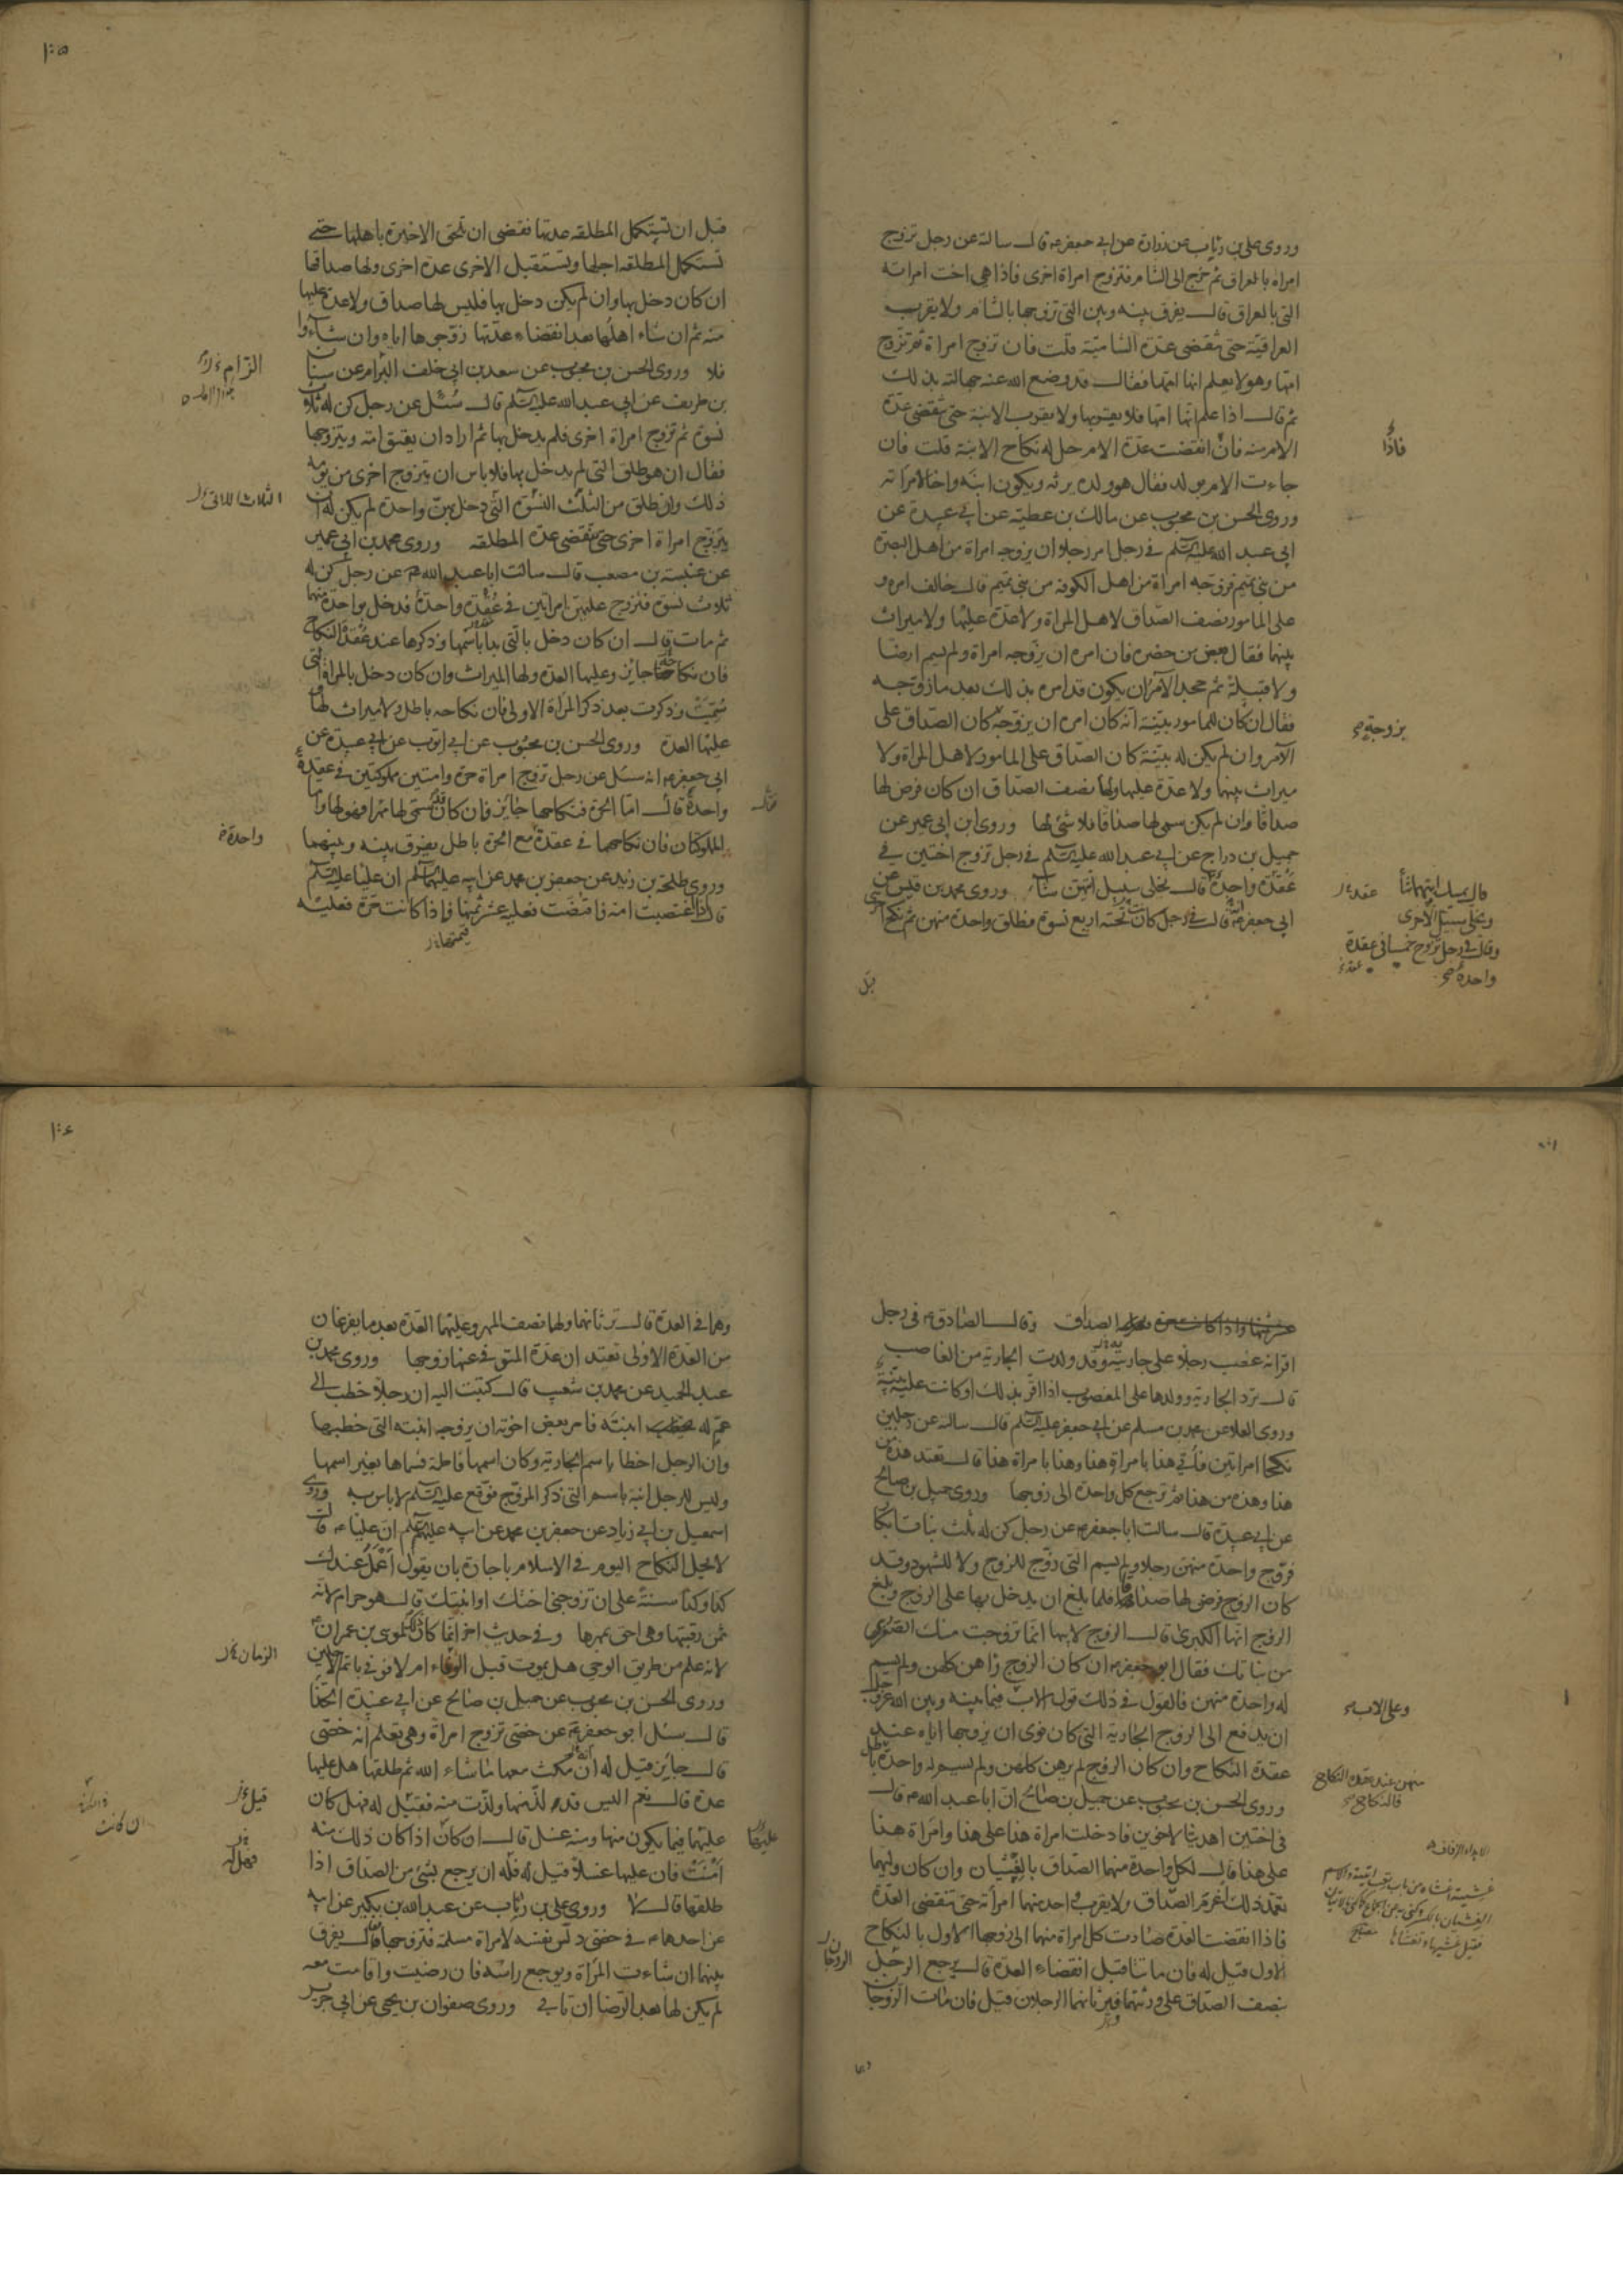 وروى علي بن رئاب عن زرارة عن ابي جعفر ع قال سالته عن رجل تزوج
امراة بالعراق ثم خرج الى الشام فتزوج امراة اخرى فاذا هي اخت امراته
التي بالعراق قال يفرق بينه وبين التي تزوجها بالشام ولا يقرب
العراقية حتى تنقضى عدة الشامية قلت فان تزوج امراة ثم تزوج
امها وهو لا يعلم انها امها فقال قد وضع الله عنه جهالته بذلك
ثم قال اذا علم انها امها فلا يقربها ولا يقرب الابنة حتى تنقضى عدة
الام منه فان انقضت عدة الام حل له نكاح الابنة قلت فان
جاءت الام بولد فقال هو ولده يرثه ويكون ابنه واخا لامراته
وروى الحسن بن محبوب عن مالك بن عطيه عن ابي عبيدة عن
ابي عبد الله عليه السلم في رجل امر رجلا ان يزوجه امراة من اهل البصرة
من بني تميم فزوجه امراة من اهل الكوفه من بني تميم قال خالف امره و
على المامور نصف الصداق لاهل المراة ولا عدة عليها ولا ميراث
بينهما فقال بعض من حضره فان امره ان يزوجه امراة ولم يسم ارضا
ولا قبيلة ثم جحد الآمر ان يكون قد امره بذلك بعد ما زوجه
فقال ان كان للمامور بينة انه كان امره ان يزوجه كان الصداق على
الآمر وان لم يكن له بينة كان الصداق على المامور لاهل المراة ولا
ميراث بينهما ولا عدة عليها ولها نصف الصداق ان كان فرض لها
صداقا وان لم يكن سمى لها صداقا فلا شئ لها وروى ابن ابي عمير عن
جميل بن دراج عن ابي عبد الله عليه السلم في رجل تزوج اختين في
عقدة واحدة قال يخلى سبيل ايتهن شاء وروى محمد بن قيس عن
ابي جعفر ع قال في رجل كان تحته اربع نسوة فطلق واحدة منهن ثم نكح اخرى
فاذا
يزوجه
قال يمسك ايتهما شاء
ويخلى سبيل الاخرى
وقال في رجل تزوج خمسا في عقدة
واحدة
قبل
١٠٥
قبل ان تستكمل المطلقه عدتها فقضى ان تلحق الاخيرة باهلها حتى
تستكمل المطلقه اجلها وتستقبل الاخرى عدة اخرى ولها صداقها
ان كان دخل بها وان لم يكن دخل بها فليس لها صداق ولا عدة عليها
منه ثم ان شاء اهلها بعد انقضاء عدتها زوجوها اياه وان شاؤا
فلا وروى الحسن بن محبوب عن سعد بن ابي خلف البزام عن سنان
بن طريف عن ابي عبد الله عليه السلم قال سئل عن رجل كن له ثلاث
نسوة ثم تزوج امراة اخرى فلم يدخل بها ثم اراد ان يعتق امته ويتزوجها
فقال ان هو طلق التي لم يدخل بها فلا باس ان يتزوج اخرى من يومه
ذلك وان طلق من الثلث النسوة التي دخل بهن واحدة لم يكن له ان
يتزوج امراة اخرى حتى تنقضى عدة المطلقه وروى محمد بن ابي عمير
عن عنبسة بن مصعب قال سالت ابا عبد الله ع عن رجل كن له
ثلاث نسوة فتزوج عليهن امراتين في عقدة واحدة فدخل بواحدة منهما
ثم مات قال ان كان دخل بالتي بدا باسمها وذكرها عند عقدة النكاح
فان نكاحه جايز وعليها العدة ولها الميراث وان كان دخل بالمراة التي
سميت وذكرت بعد ذكر المراة الاولى فان نكاحه باطل ولا ميراث لها و
عليها العدة وروى الحسن بن محبوب عن ابي ايوب عن ابي عبيدة عن
ابي جعفر ع انه سئل عن رجل تزوج امراة حرة وامتين مملوكتين في عقدة
واحدة قال اما الحرة فنكاحها جايز فان كان قد سمى لها مهرا فهو لها واما
المملوكتان فان نكاحهما في عقدة مع الحرة باطل يفرق بينه وبينهما
وروى طلحة بن زيد عن جعفر بن محمد عن ابيه عليهما السلم ان عليا عليه السلم
قال اذا اغتصبت امة فاقتضت فعليه عشر ثمنها فاذا كانت حرة فعليه
قيمتها
الزام
الثلاث اللاتى
واحدة
عشر ثمنها واذا كانت حرة فعليه الصداق وقال الصادق ع في رجل
اقر انه غصب رجلا على جاريته وقد ولدت الجارية من الغاصب
قال ترد الجارية وولدها على المغصوب اذا اقر بذلك او كانت عليه بينة
وروى العلا عن محمد بن مسلم عن ابي جعفر عليه السلم قال سالته عن رجلين
نكحا امراتين فاتي هذا بامراة هذا وهذا بامراة هذا قال تعتد هذه من
هذا وهذه من هذا ثم ترجع كل واحدة الى زوجها وروى جميل بن صالح
عن ابي عبيدة قال سالت ابا جعفر ع عن رجل كن له ثلث بنات ابكار
فزوج واحدة منهن رجلا ولم يسم التي زوج للزوج ولا للشهود وقد
كان الزوج فرض لها صداقها فلما بلغ ان يدخل بها على الزوج وبلغ
الزوج انها الكبرى قال الزوج لابيها انما تزوجت منك الصغرى
من بناتك فقال ابو جعفر ع ان كان الزوج راهن كلهن ولم يسم
له واحدة منهن فالقول في ذلك قول الاب فيما بينه وبين الله عز وجل
ان يدفع الى الزوج الجارية التي كان نوى ان يزوجها اياه عند
عقدة النكاح وان كان الزوج لم يرهن كلهن ولم يسم له واحدة باطل
وروى الحسن بن محبوب عن جميل بن صالح ان ابا عبد الله ع قال
في اختين اهديتا لاخوين فادخلت امراة هذا على هذا وامراة هذا
على هذا قال لكل واحدة منهما الصداق بالغشيان وان كان وليهما
تعمد ذلك اغرم الصداق ولا يقرب واحد منهما امراته حتى تنقضى العدة
فاذا انقضت العدة صارت كل امراة منهما الى زوجها الاول بالنكاح
الاول قيل له فان ماتتا قبل انقضاء العدة قال يرجع الرجلان
بنصف الصداق على ورثتهما فيرثانهما الرجلان قيل فان مات الزوجان
وعلى الاب
منهن عند عقدة النكاح
فالنكاح
الزوجان
وهما
١٠٦
وهما في العدة قال ترثانهما ولهما نصف المهر وعليهما العدة بعد ما يفرغان
من العدة الاولى تعتد ان عدة المتوفى عنها زوجها وروى محمد بن
عبد الحميد عن محمد بن شعيب قال كتبت اليه ان رجلا خطب الى
عم له ابنته فامر بعض اخوته ان يزوجه ابنته التي خطبها
وان الرجل اخطا باسم الجارية وكان اسمها فاطمة فسماها بغير اسمها
وليس للرجل ابنة باسم التي ذكر المزوج فوقع عليه السلم لا باس به وروى
اسمعيل بن ابي زياد عن جعفر بن محمد عن ابيه عليهم السلم ان عليا ع قال
لا يحل النكاح اليوم في الاسلام باجازة بان يقول اعمل عندك
كذا وكذا سنة على ان تزوجني اختك او ابنتك قال هو حرام لانه
ثمن رقبتها وهي احق بمهرها وفي حديث اخر انما كان ذلك لموسى بن عمران ع
لانه علم من طريق الوحي هل يموت قبل الوفاء ام لا فوفى باتم الاجلين
وروى الحسن بن محبوب عن جميل بن صالح عن ابي عبيدة الحذا
قال سئل ابو جعفر ع عن خصى تزوج امراة وهي تعلم انه خصى
قال جايز قيل له انه مكث معها ما شاء الله ثم طلقها هل عليها
عدة قال نعم اليس قد لذ منها ولذت منه فقيل له فهل كان
عليها فيما يكون منها ومنه غسل قال ان كان اذا كان ذلك منه
امنت فان عليها غسلا قيل له فله ان يرجع بشئ من الصداق اذا
طلقها قال لا وروى علي بن رئاب عن عبد الله بن بكير عن ابيه
عن احدهما ع في خصى دلس نفسه لامراة مسلمة فتزوجها قال يفرق
بينهما ان شاءت المراة ويوجع راسه فان رضيت واقامت معه
لم يكن لها بعد الرضا ان تاباه وروى صفوان بن يحيى عن ابي جرير
الزمان
قيل
فهل
عليهما
ان كانت